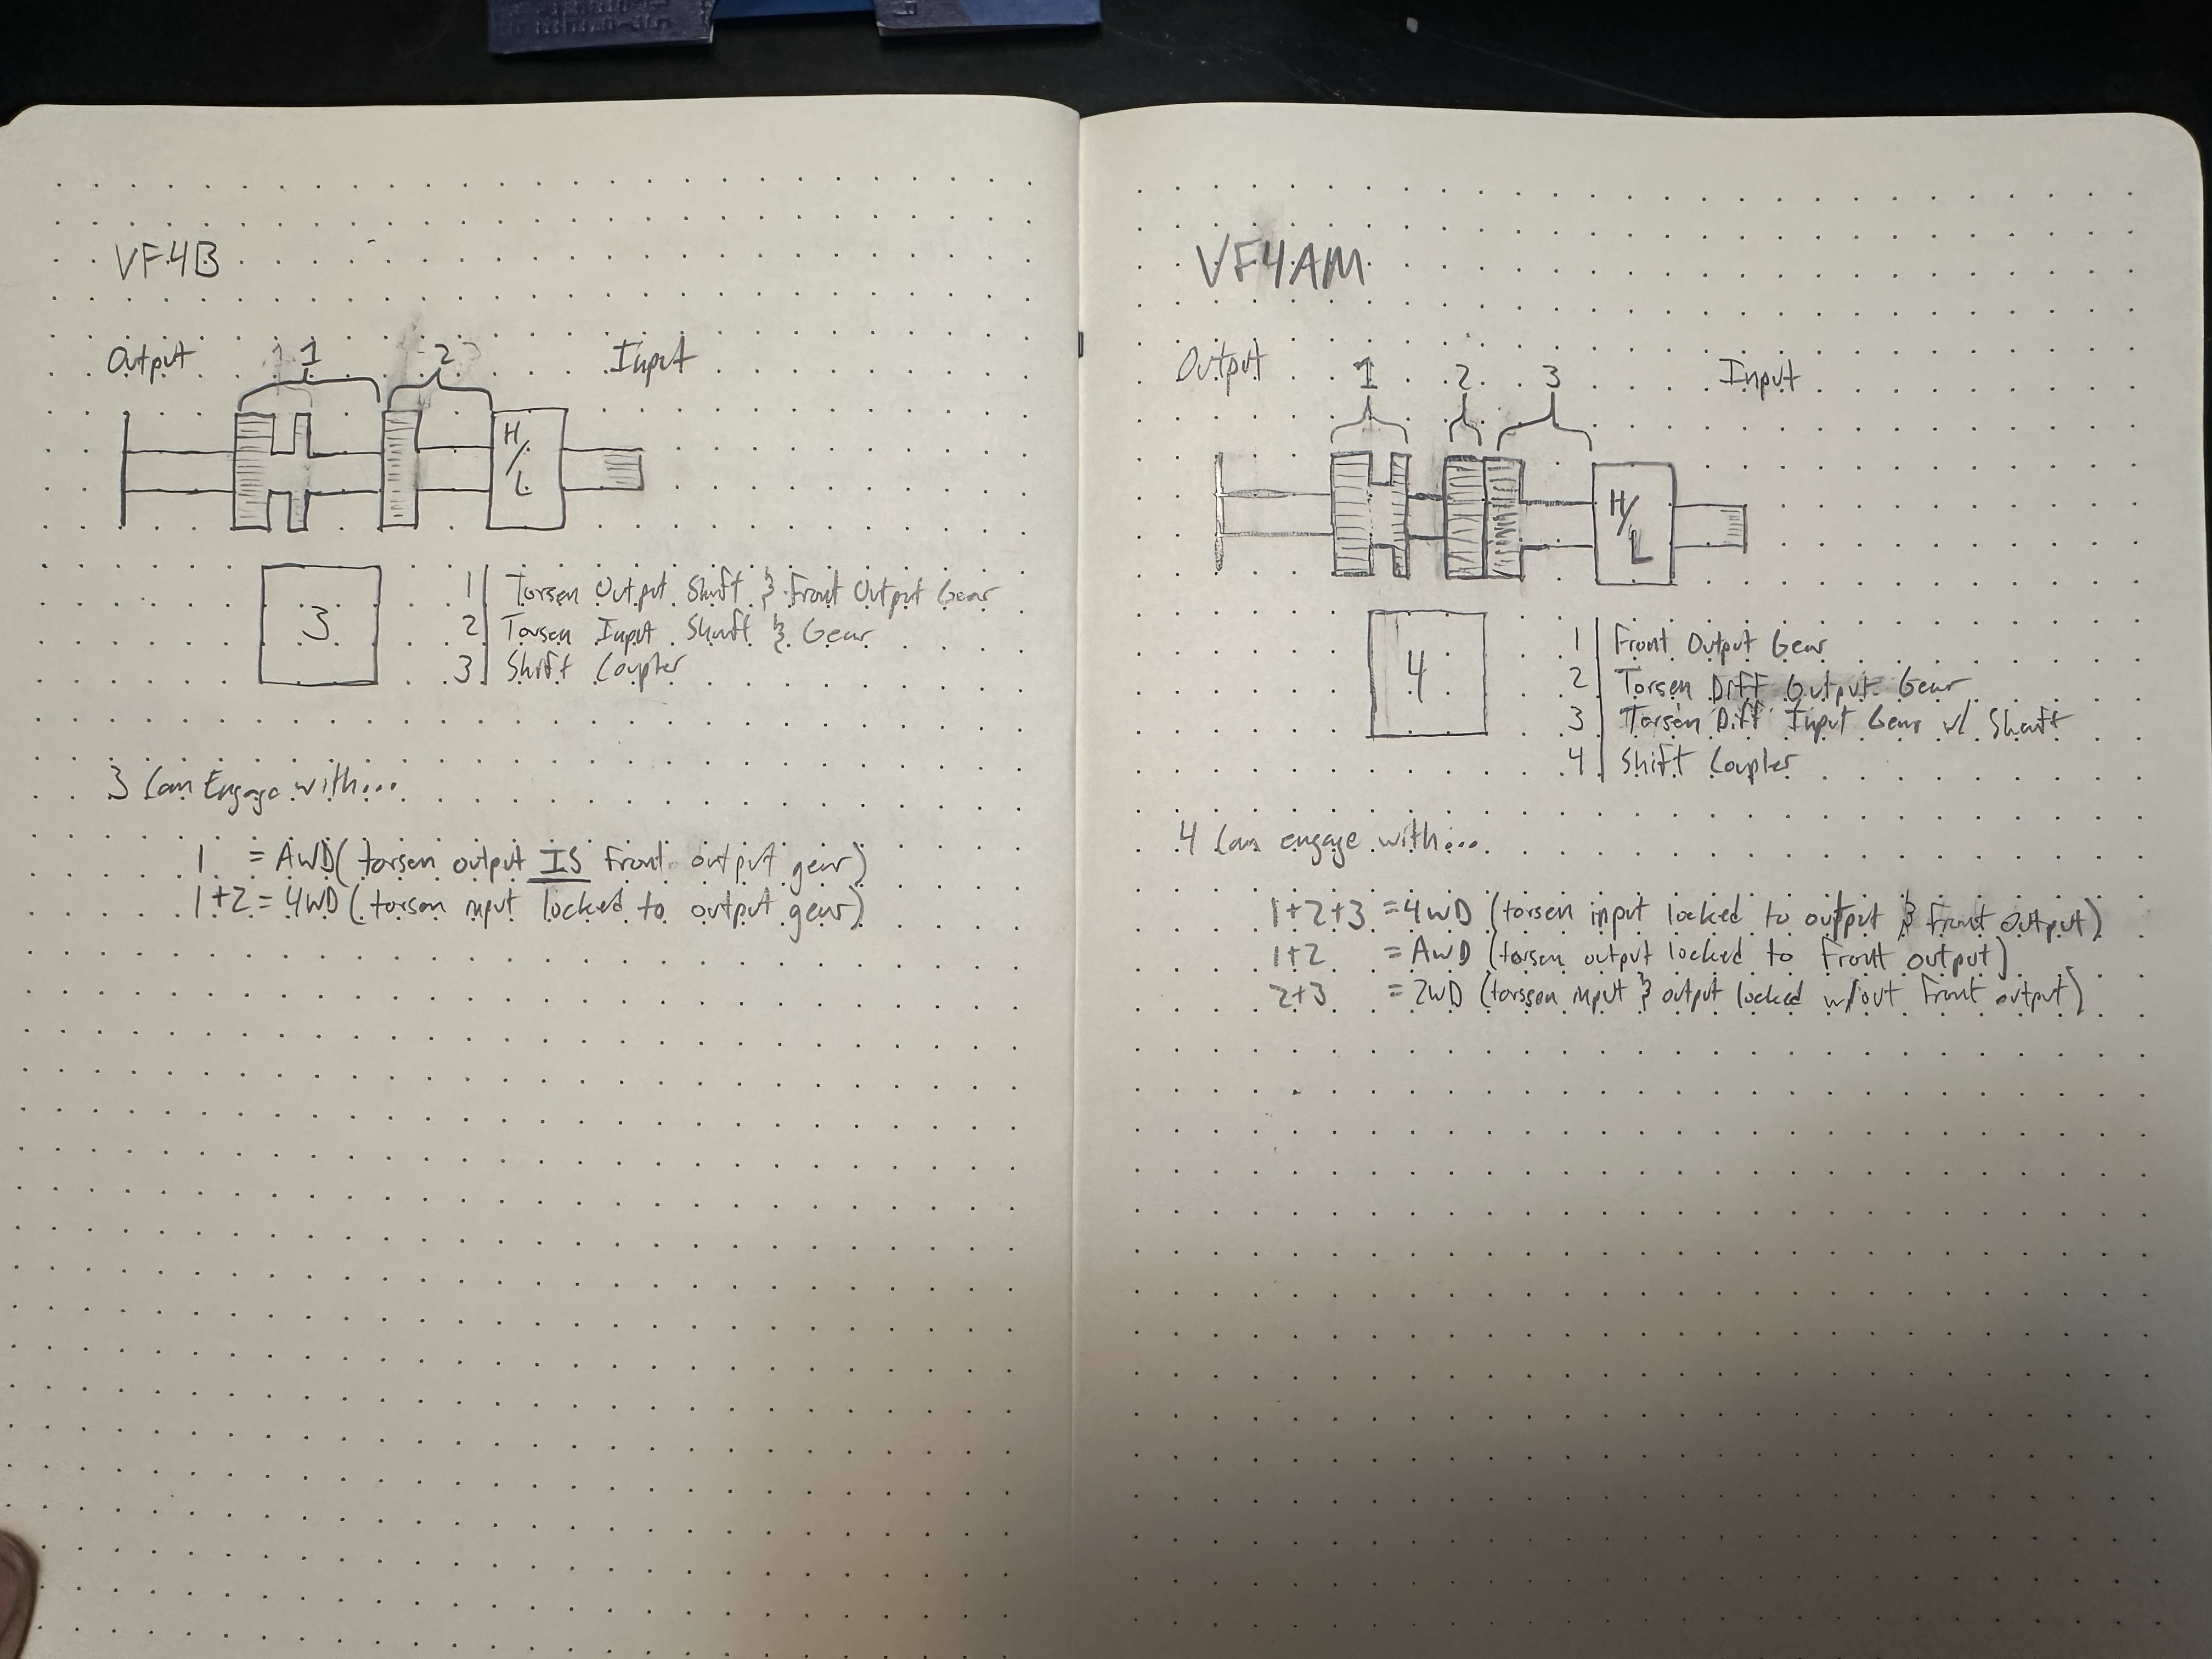 VF4B
Output 1 2 Input
H/L
3
1 Torsen Output Shaft & Front Output Gear
2 Torsen Input Shaft & Gear
3 Shift Coupler
3 Can Engage with...
1 = AWD (torsen output IS front output gear)
1+2 = 4WD (torsen input locked to output gear)
VF4AM
Output 1 2 3 Input
H/L
4
1 Front Output Gear
2 Torsen Diff Output Gear
3 Torsen Diff Input Gear w/ Shaft
4 Shift Coupler
4 Can engage with...
1+2+3 = 4WD (torsen input locked to output & front output)
1+2 = AWD (torsen output locked to front output)
2+3 = 2WD (torsson input & output locked w/out front output)